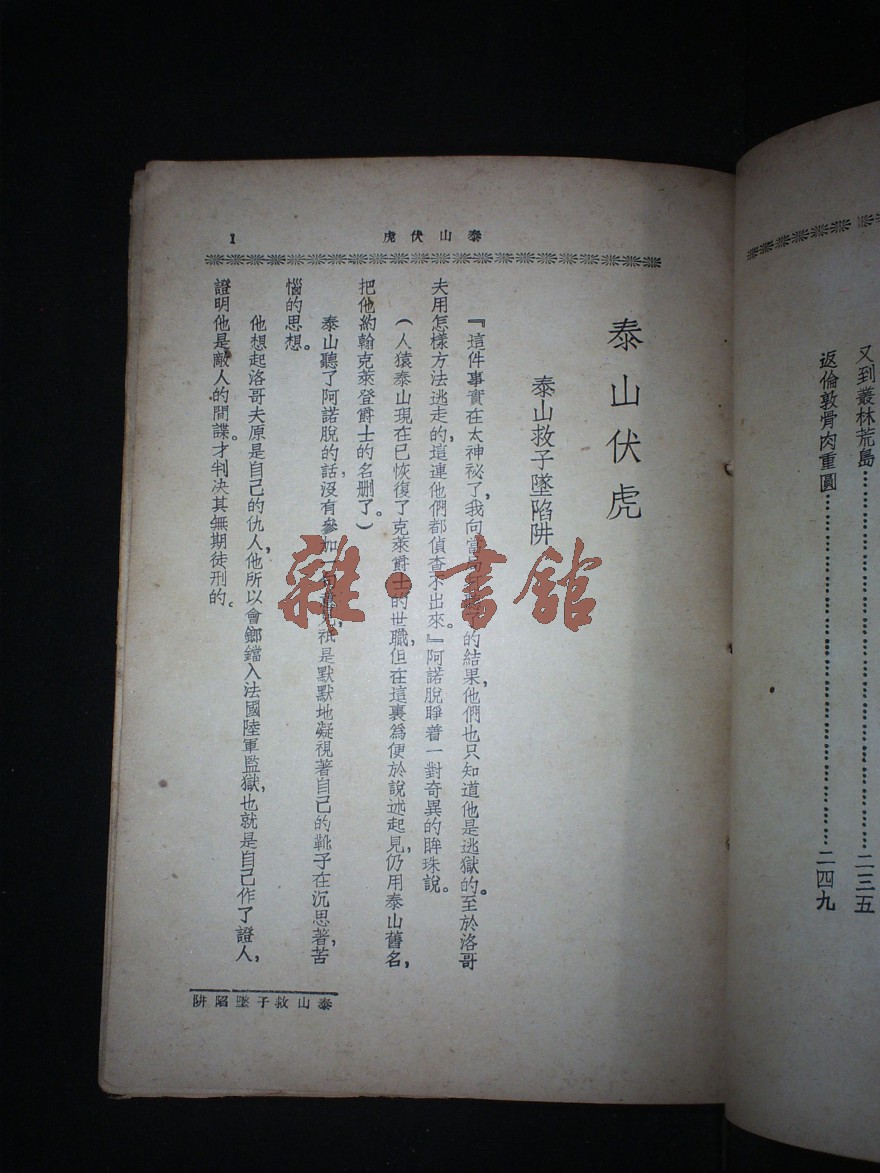 又到叢林荒島……二三五
返倫敦骨肉重圓……二四九
泰山伏虎
1
泰山伏虎
泰山救子墜陷阱
『這件事實在太神祕了，我向當的結果，他們也只知道他是逃獄的。至於洛哥
夫用怎樣方法逃走的，這連他們都偵查不出來。』阿諾脫睜着一對奇異的眸珠說。
（人猿泰山現在已恢復了克萊爵士的世職，但在這裏爲便於說述起見，仍用泰山舊名，
把他約翰克萊登爵士的名删了。）
泰山聽了阿諾脫的話，沒有參加一句意見，祇是默默地凝視著自己的靴子在沉思著，苦
惱的思想。
他想起洛哥夫原是自己的仇人，他所以會鋃鐺入法國陸軍監獄，也就是自己作了證人，
證明他是敵人的間諜。才判决其無期徒刑的。
泰山救子墜陷阱
雜·書舘